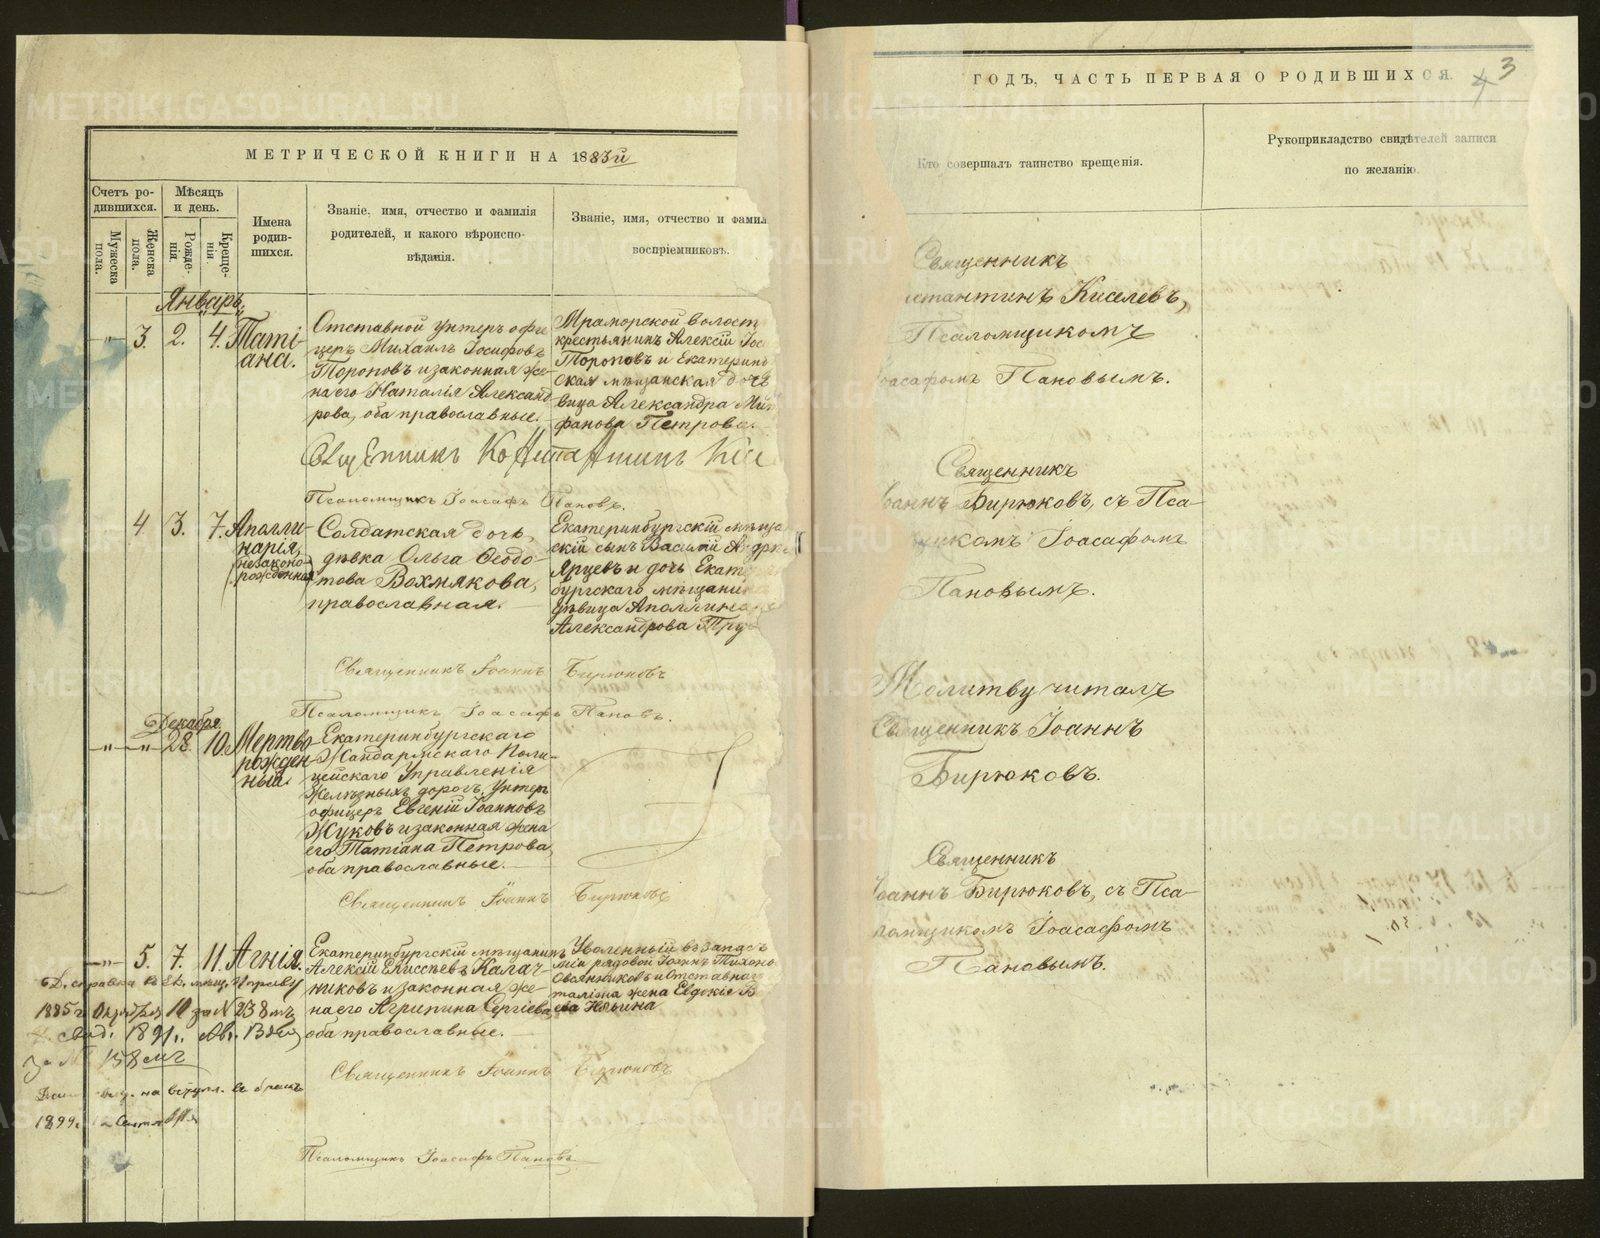 МЕТРИЧЕСКОЙ КНИГИ НА 1883й
Счетъ ро-
дившихся.
Мѣсяцъ
и день.
Мужеска
пола.
Женска
пола.
Рожде-
нія.
Креще-
нія.
Имена
родив-
шихся.
Званіе, имя, отчество и фамилія
родителей, и какого вѣроиспо-
вѣданія.
Званіе, имя, отчество и фамил
воспріемниковъ.
Январь.
—„— 3. 2. 4. Таті-
ана.
Отставной унтеръ офи
церъ Михаилъ Іосифовъ
Тороповъ и законная же-
на его Наталія Александ
рова, оба православные.
Мраморской волост
крестьянинъ Алексій Іос
Тороповъ и Екатерин
ская мѣщанская дочь
вица Александра Ми
фанова Петрова.
Священникъ Константинъ Кис
Псаломщикъ Іоасафъ Пановъ.
4 3. 7. Аполли-
нарія,
незаконо-
рожденная
Солдатская дочь,
дѣвка Ольга Ѳеодо-
това Вохмякова,
православная.
Екатеринбургскій мѣща
скій сынъ Василій Андре
Ярцевъ и дочь Екате
бургскаго мѣщанина
дѣвица Аполлинарія
Александрова Тру
Священникъ Іоаннъ Бирюковъ
Псаломщикъ Іоасафъ Пановъ.
Декабря
—„— —„— 28. 10. Мертво-
рожден-
ный.
Екатеринбургскаго
Жандармскаго Поли-
цейскаго Управленія
Желѣзныхъ дорогъ, Унтеръ
офицеръ Евгеній Іоанновъ
Жуковъ и законная жена
его Татіана Петрова,
оба православные.
Священникъ Іоаннъ Бирюковъ
—„— 5. 7. 11. Агнія.
Екатеринбургскій мѣщанинъ
Алексій Елисеевъ Калач-
никовъ и законная же-
на его Агрипина Сергіева,
оба православные.
Уволенный въ запасъ
рядовой Іоаннъ Тихонъ
Овсянниковъ и Отставнаго
жена Евдокія В
ева Ильина
справка
1885 г. 10 за № 238мъ
1891г.
За № 158мъ
на вступл. въ бракъ
1899г.
Священникъ Іоаннъ Бирюковъ
Псаломщикъ Іоасафъ Пановъ
ГОДЪ, ЧАСТЬ ПЕРВАЯ О РОДИВШИХСЯ.
3
Кто совершалъ таинство крещенія.
Рукоприкладство свидѣтелей записи
по желанію.
Священникъ
стантинъ Киселевъ,
Псаломщикомъ
оасафомъ Пановымъ.
Священникъ
оаннъ Бирюковъ, съ Пса-
щикомъ Іоасафомъ
Пановымъ.
Молитву читалъ
Священникъ Іоаннъ
Бирюковъ.
Священникъ
оаннъ Бирюковъ, съ Пса-
ломщикомъ Іоасафомъ
Пановымъ.
METRIKI.GASO-URAL.RU